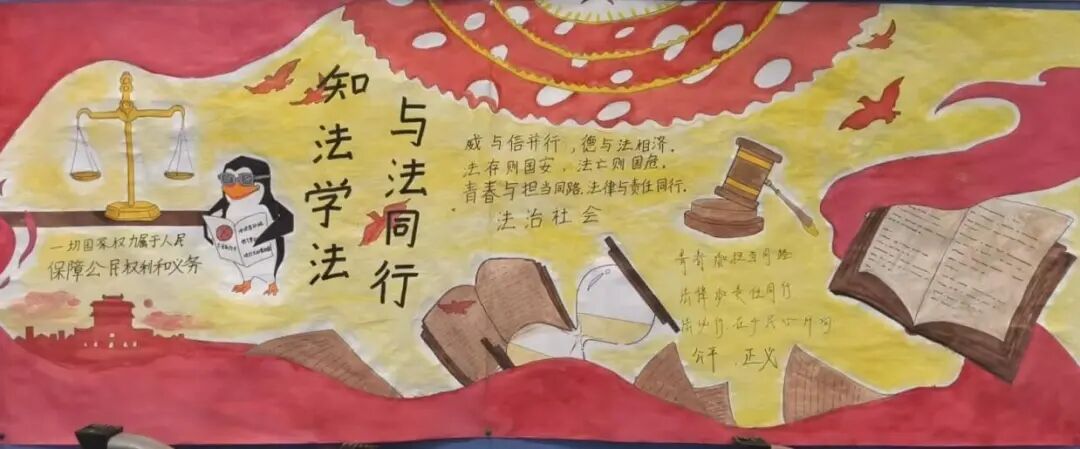 知法学法
与法同行
一切国家权力属于人民
保障公民权利和义务
威与信并行，德与法相济.
法存则国安，法亡则国危.
青春与担当同路.法律与责任同行.
法治社会
青春 担当同路
法律 责任同行
公平 正义